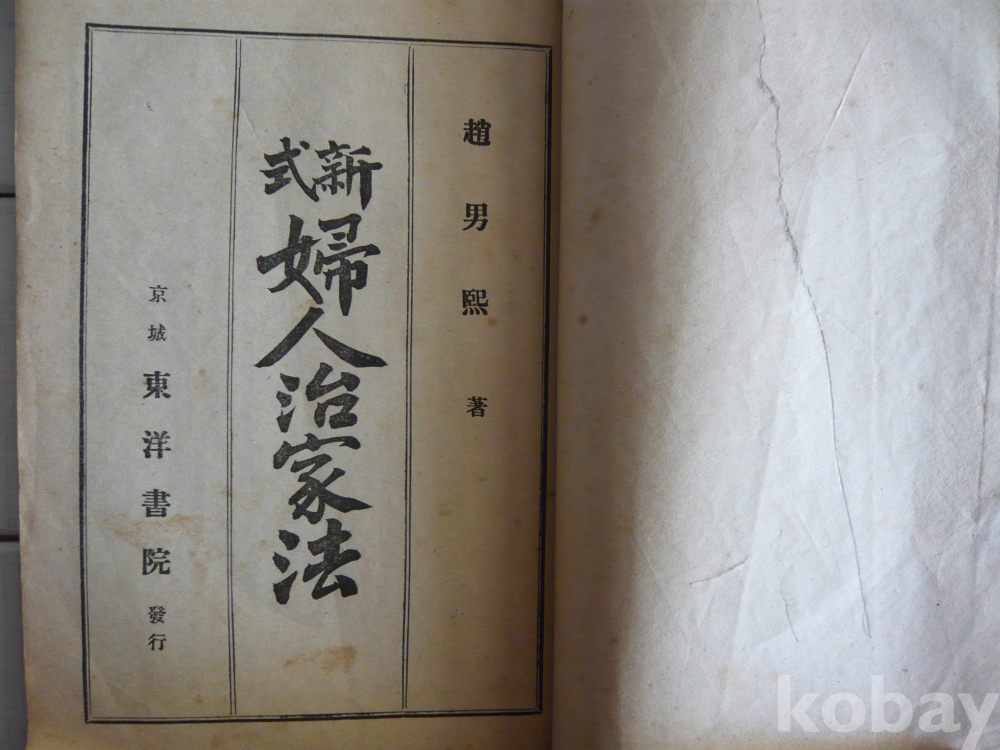 趙男熙 著
新式 婦人治家法
京城 東洋書院 發行
kobay